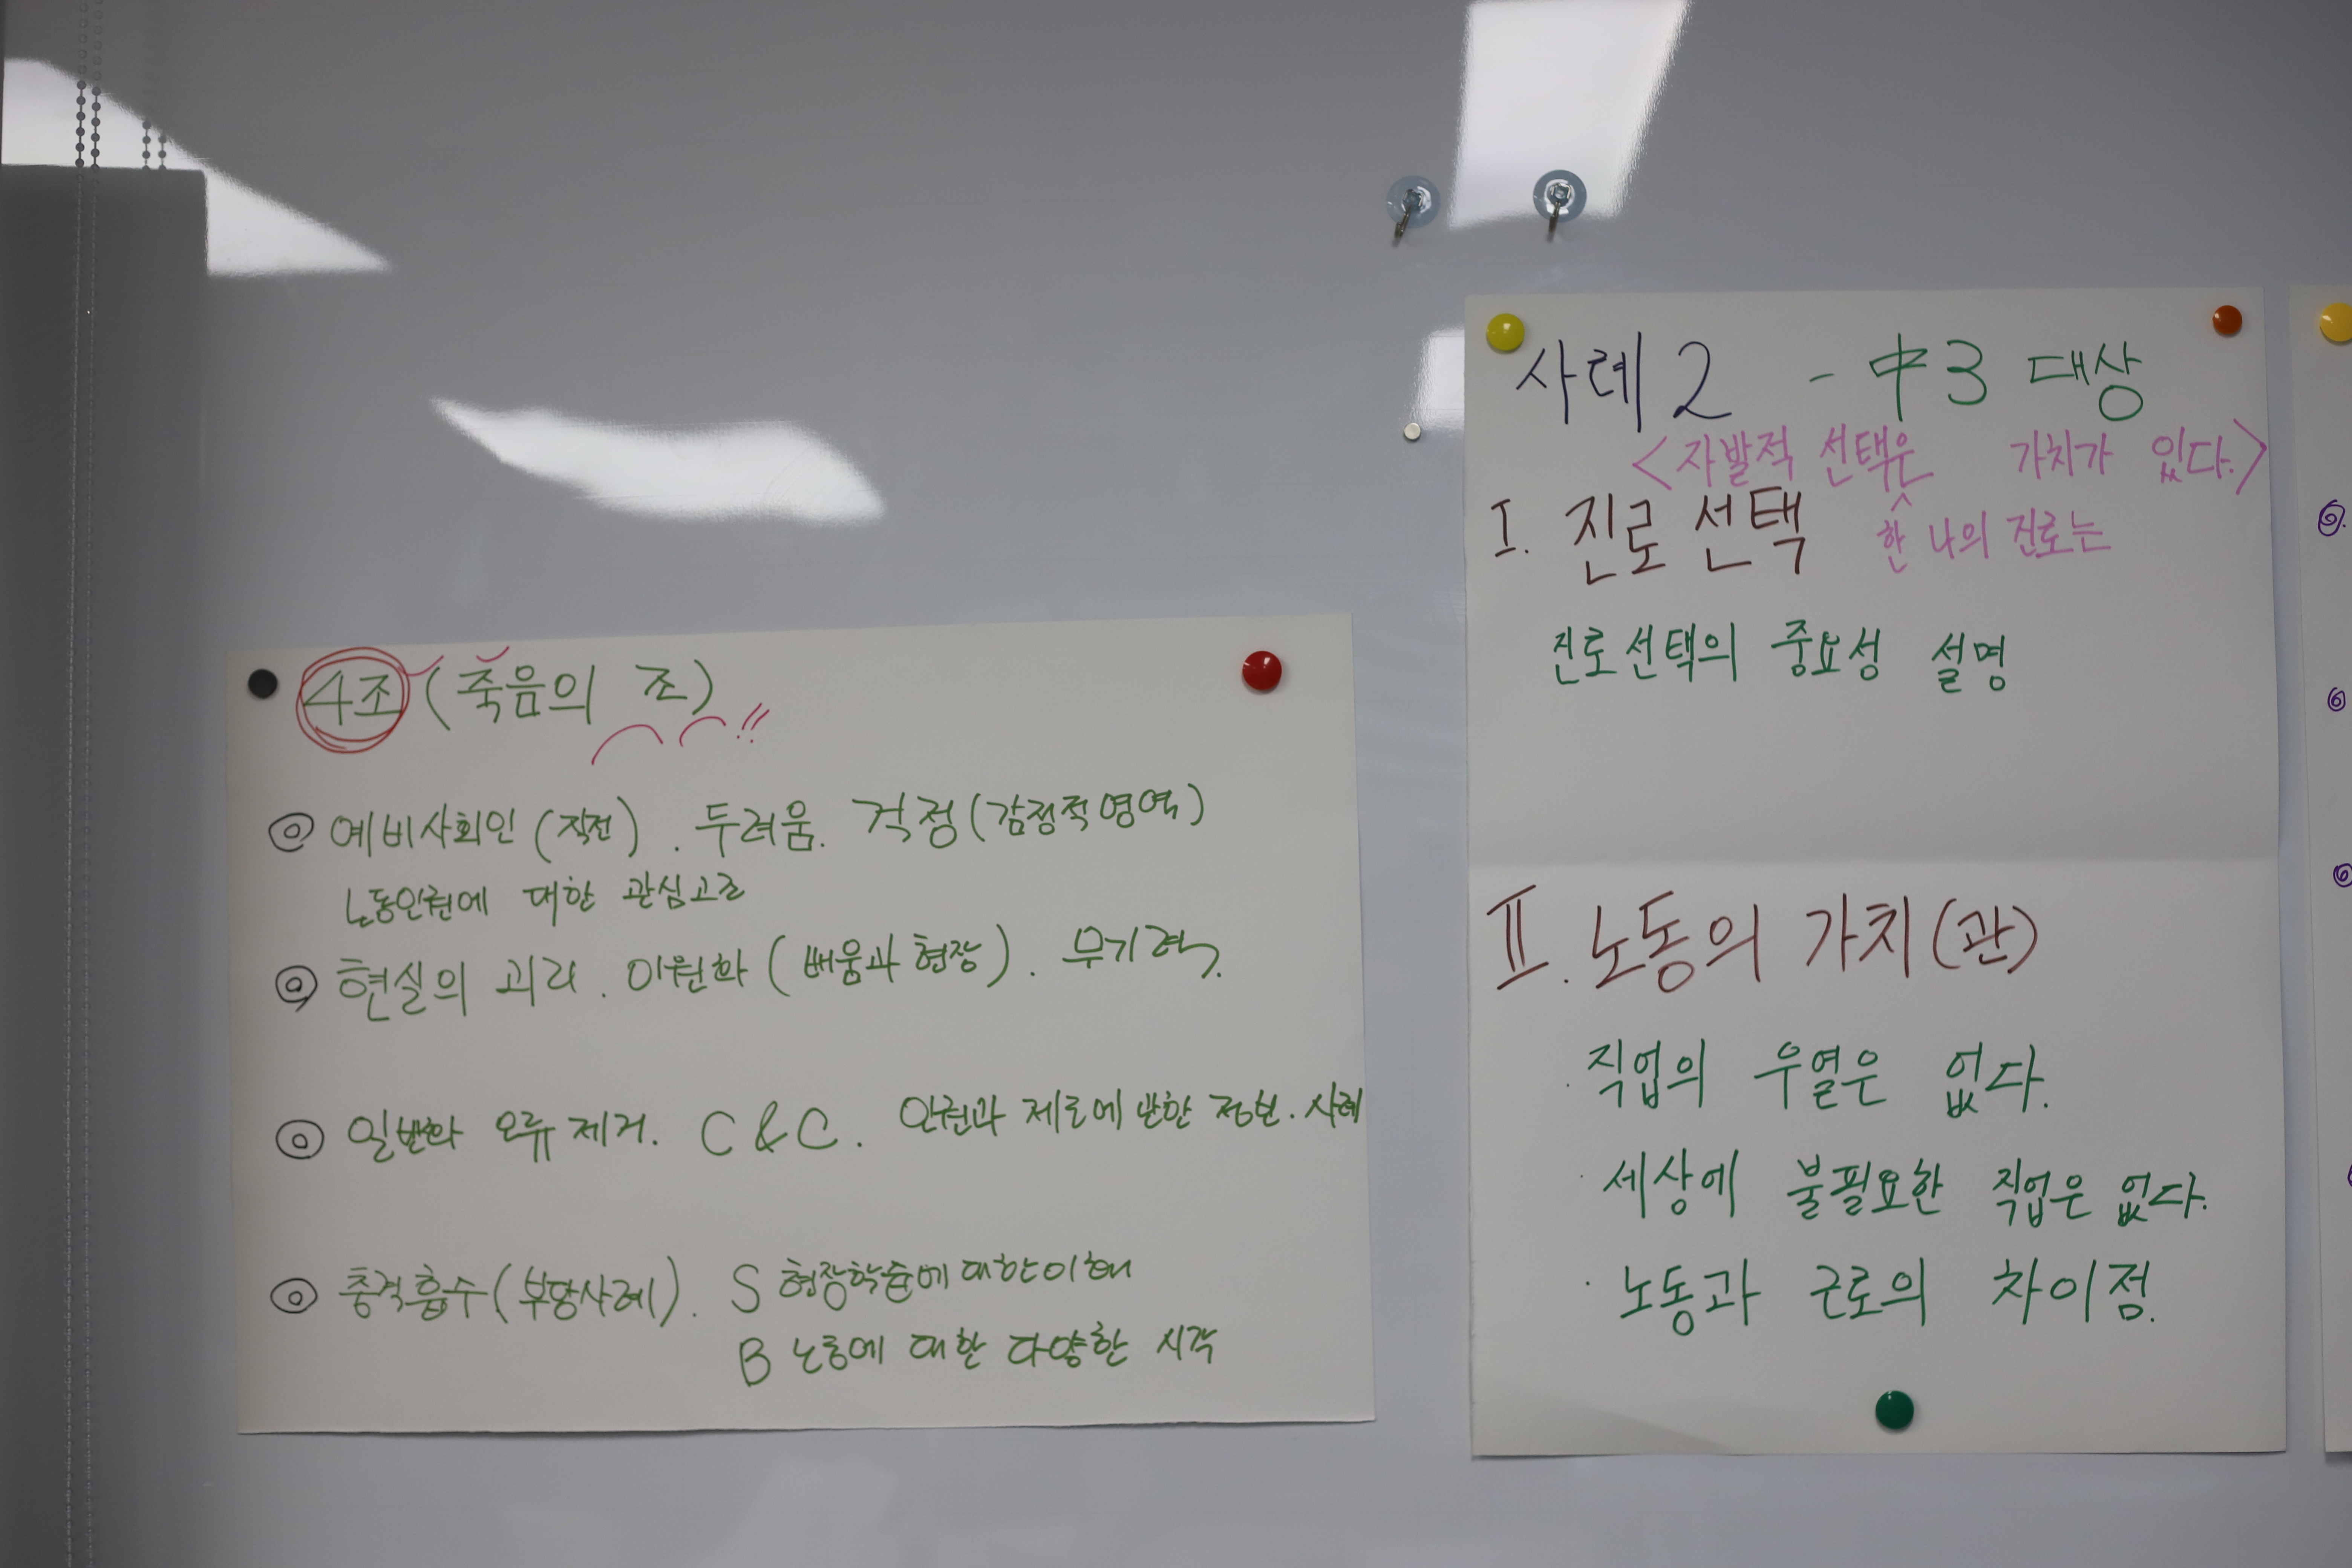 4조 (죽음의 조) !!
◎ 예비사회인 (직전). 두려움. 걱정 (감정적영역)
노동인권에 대한 관심고조
◎ 현실의 괴리. 이원화 (배움과 현장). 무기력.
◎ 일반화 오류 제거. C & C. 인권과 제도에 관한 정보. 사례
◎ 충격흡수 (부당사례). S 현장학습에 대한이해
B 노동에 대한 다양한 시각
사례 2 - 中3 대상
<자발적 선택은 가치가 있다.>
한 나의 진로는
I. 진로 선택
진로선택의 중요성 설명
II. 노동의 가치(관)
· 직업의 우열은 없다.
· 세상에 불필요한 직업은 없다.
· 노동과 근로의 차이점.